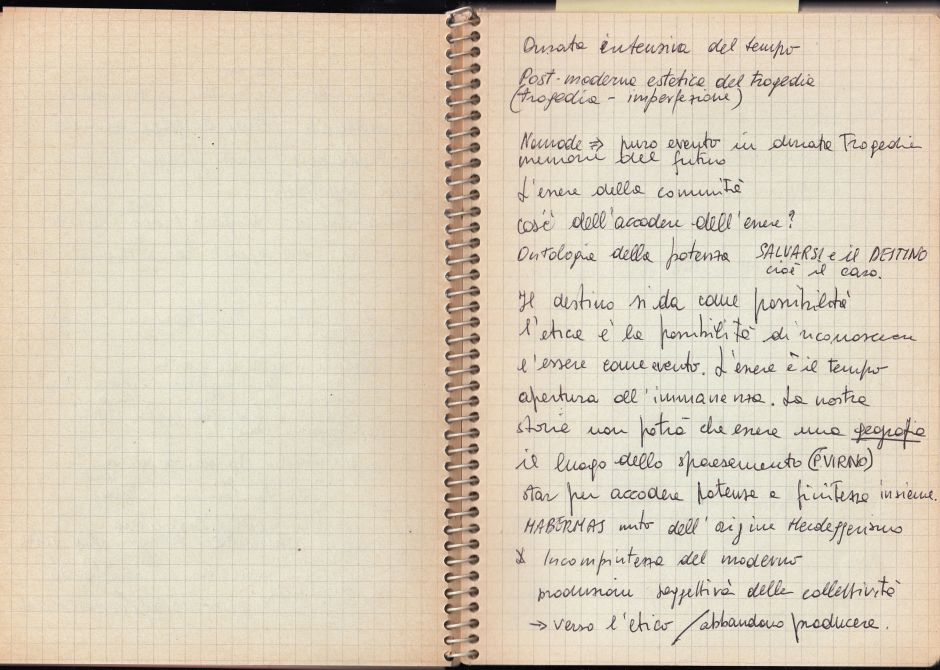 Durata intensiva del tempo
Post-moderna estetica del tragedia
(tragedia - imperfezione)
Nomade ⇒ puro evento in durata Tragedia
memorie del futuro
L'essere della comunità
cos'è dell'accadere dell'essere?
Ontologia della potenza SALVARSI e il DESTINO
cioè il caso.
Il destino si da come possibilità
l'etica è la possibilità di riconoscere
l'essere come evento. L'essere è il tempo
apertura all'immanenza. La nostra
storia non potrà che essere una geografia
il luogo dello spaesamento (P.VIRNO)
star per accadere potenza e finitezza insieme.
HABERMAS mito dell'origine Heideggerismo
Incompiutezza del moderno
produzione soggettività delle collettività
→ verso l'etico / abbandono producere.